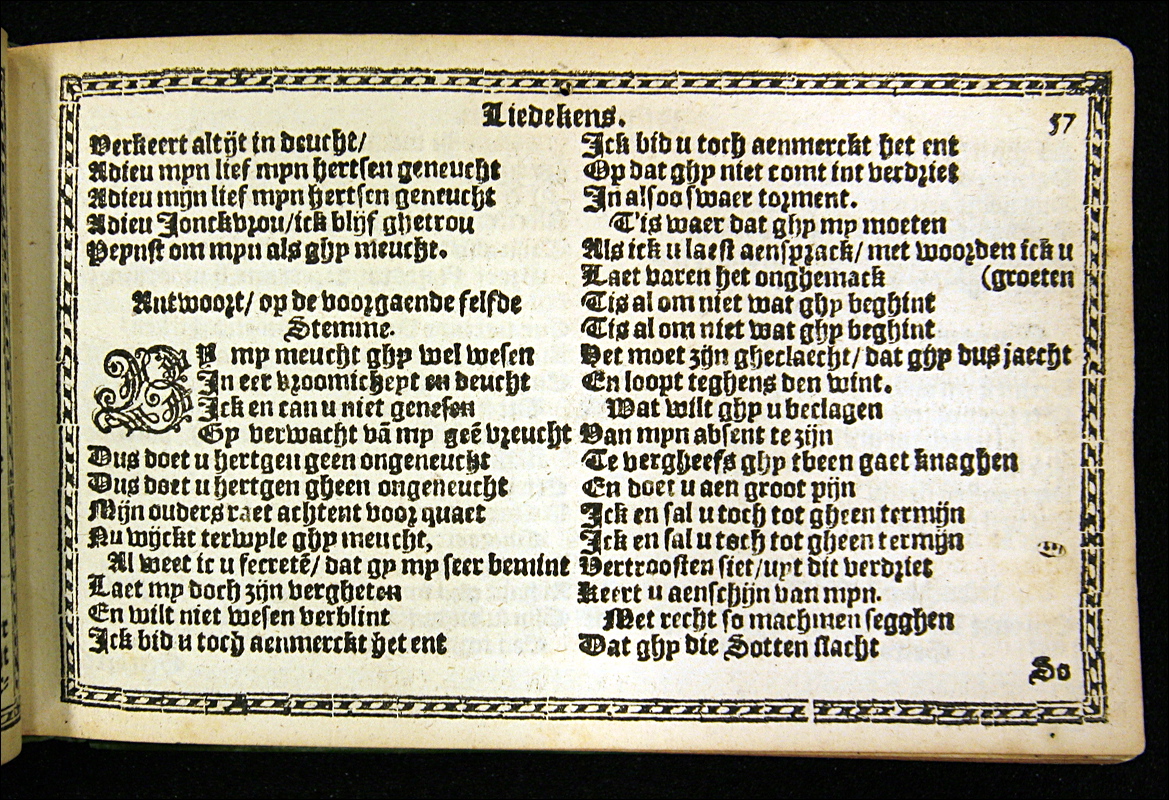 Liedekens.
57
Verkeert altijt in deucht/
Adieu mijn lief mijn hertsen geneucht
Adieu mijn lief mijn hertsen geneucht
Adieu Jonckvrou/ick blijf ghetrou
Peynst om mijn als ghy meucht.
Antwoort/ op de voorgaende selfde
Stemme.
By my meucht ghy wel wesen
In eer vroomicheyt en deucht
Ick en can u niet genesen
Gy verwacht vā my geē vreucht
Dus doet u hertgen geen ongeneucht
Dus doet u hertgen gheen ongeneucht
Mijn ouders raet achtent voor quaet
Nu wijckt terwyle ghy meucht,
Al weet ic u secretē/ dat gy my seer bemint
Laet my doch zijn vergheten
En wilt niet wesen verblint
Ick bid u toch aenmerckt het ent
Ick bid u toch aenmerckt het ent
Op dat ghy niet comt int verdriet
In alsoo swaer torment.
T'is waer dat ghy my moeten
Als ick u laest aensprack/ met woorden ick u
Laet varen het onghemack (groeten
Tis al om niet wat ghy beghint
Tis al om niet wat ghy beghint
Het moet zijn gheclaecht/ dat ghy dus jaecht
En loopt teghens den wint.
Wat wilt ghy u beclagen
Van mijn absent te zijn
Te vergheefs ghy tbeen gaet knaghen
En doet u aen groot pijn
Ick en sal u toch tot gheen termijn
Ick en sal u toch tot gheen termijn
Vertroosten siet/uyt dit verdriet
Keert u aenschijn van mijn.
Met recht so machmen segghen
Dat ghy die Sotten slacht
So